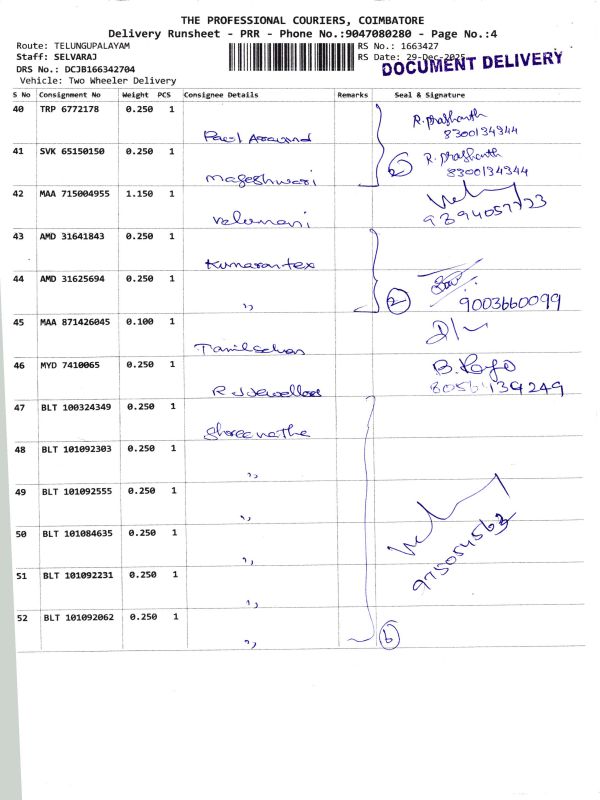 THE PROFESSIONAL COURIERS, COIMBATORE
Delivery Runsheet - PRR - Phone No.:9047080280 - Page No.:4
Route: TELUNGUPALAYAM
RS No.: 1663427
Staff: SELVARAJ
RS Date: 29-Dec-2025
DRS No.: DCJB166342704
DOCUMENT DELIVERY
Vehicle: Two Wheeler Delivery
S No Consignment No Weight PCS Consignee Details Remarks Seal & Signature
40 TRP 6772178 0.250 1
R. Prashanth
8300134944
Paul Aravind
41 SVK 65150150 0.250 1
R. Prashanth
8300134944
2
Mageshwari
42 MAA 715004955 1.150 1
Velumani
9394057723
43 AMD 31641843 0.250 1
Kumarantex
44 AMD 31625694 0.250 1
"
2
9003660099
45 MAA 871426045 0.100 1
46 MYD 7410065 0.250 1
B.
R J Jewellers
47 BLT 100324349 0.250 1
Shreenatha
48 BLT 101092303 0.250 1
"
49 BLT 101092555 0.250 1
"
50 BLT 101084635 0.250 1
"
51 BLT 101092231 0.250 1
"
52 BLT 101092062 0.250 1
"
6